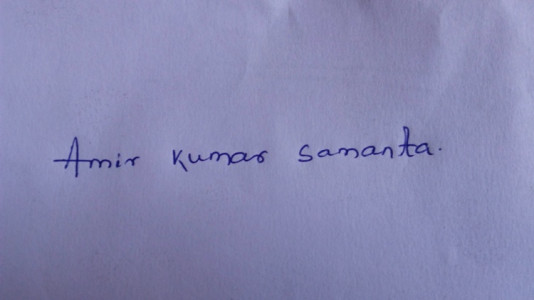 Amir Kumar Samanta.